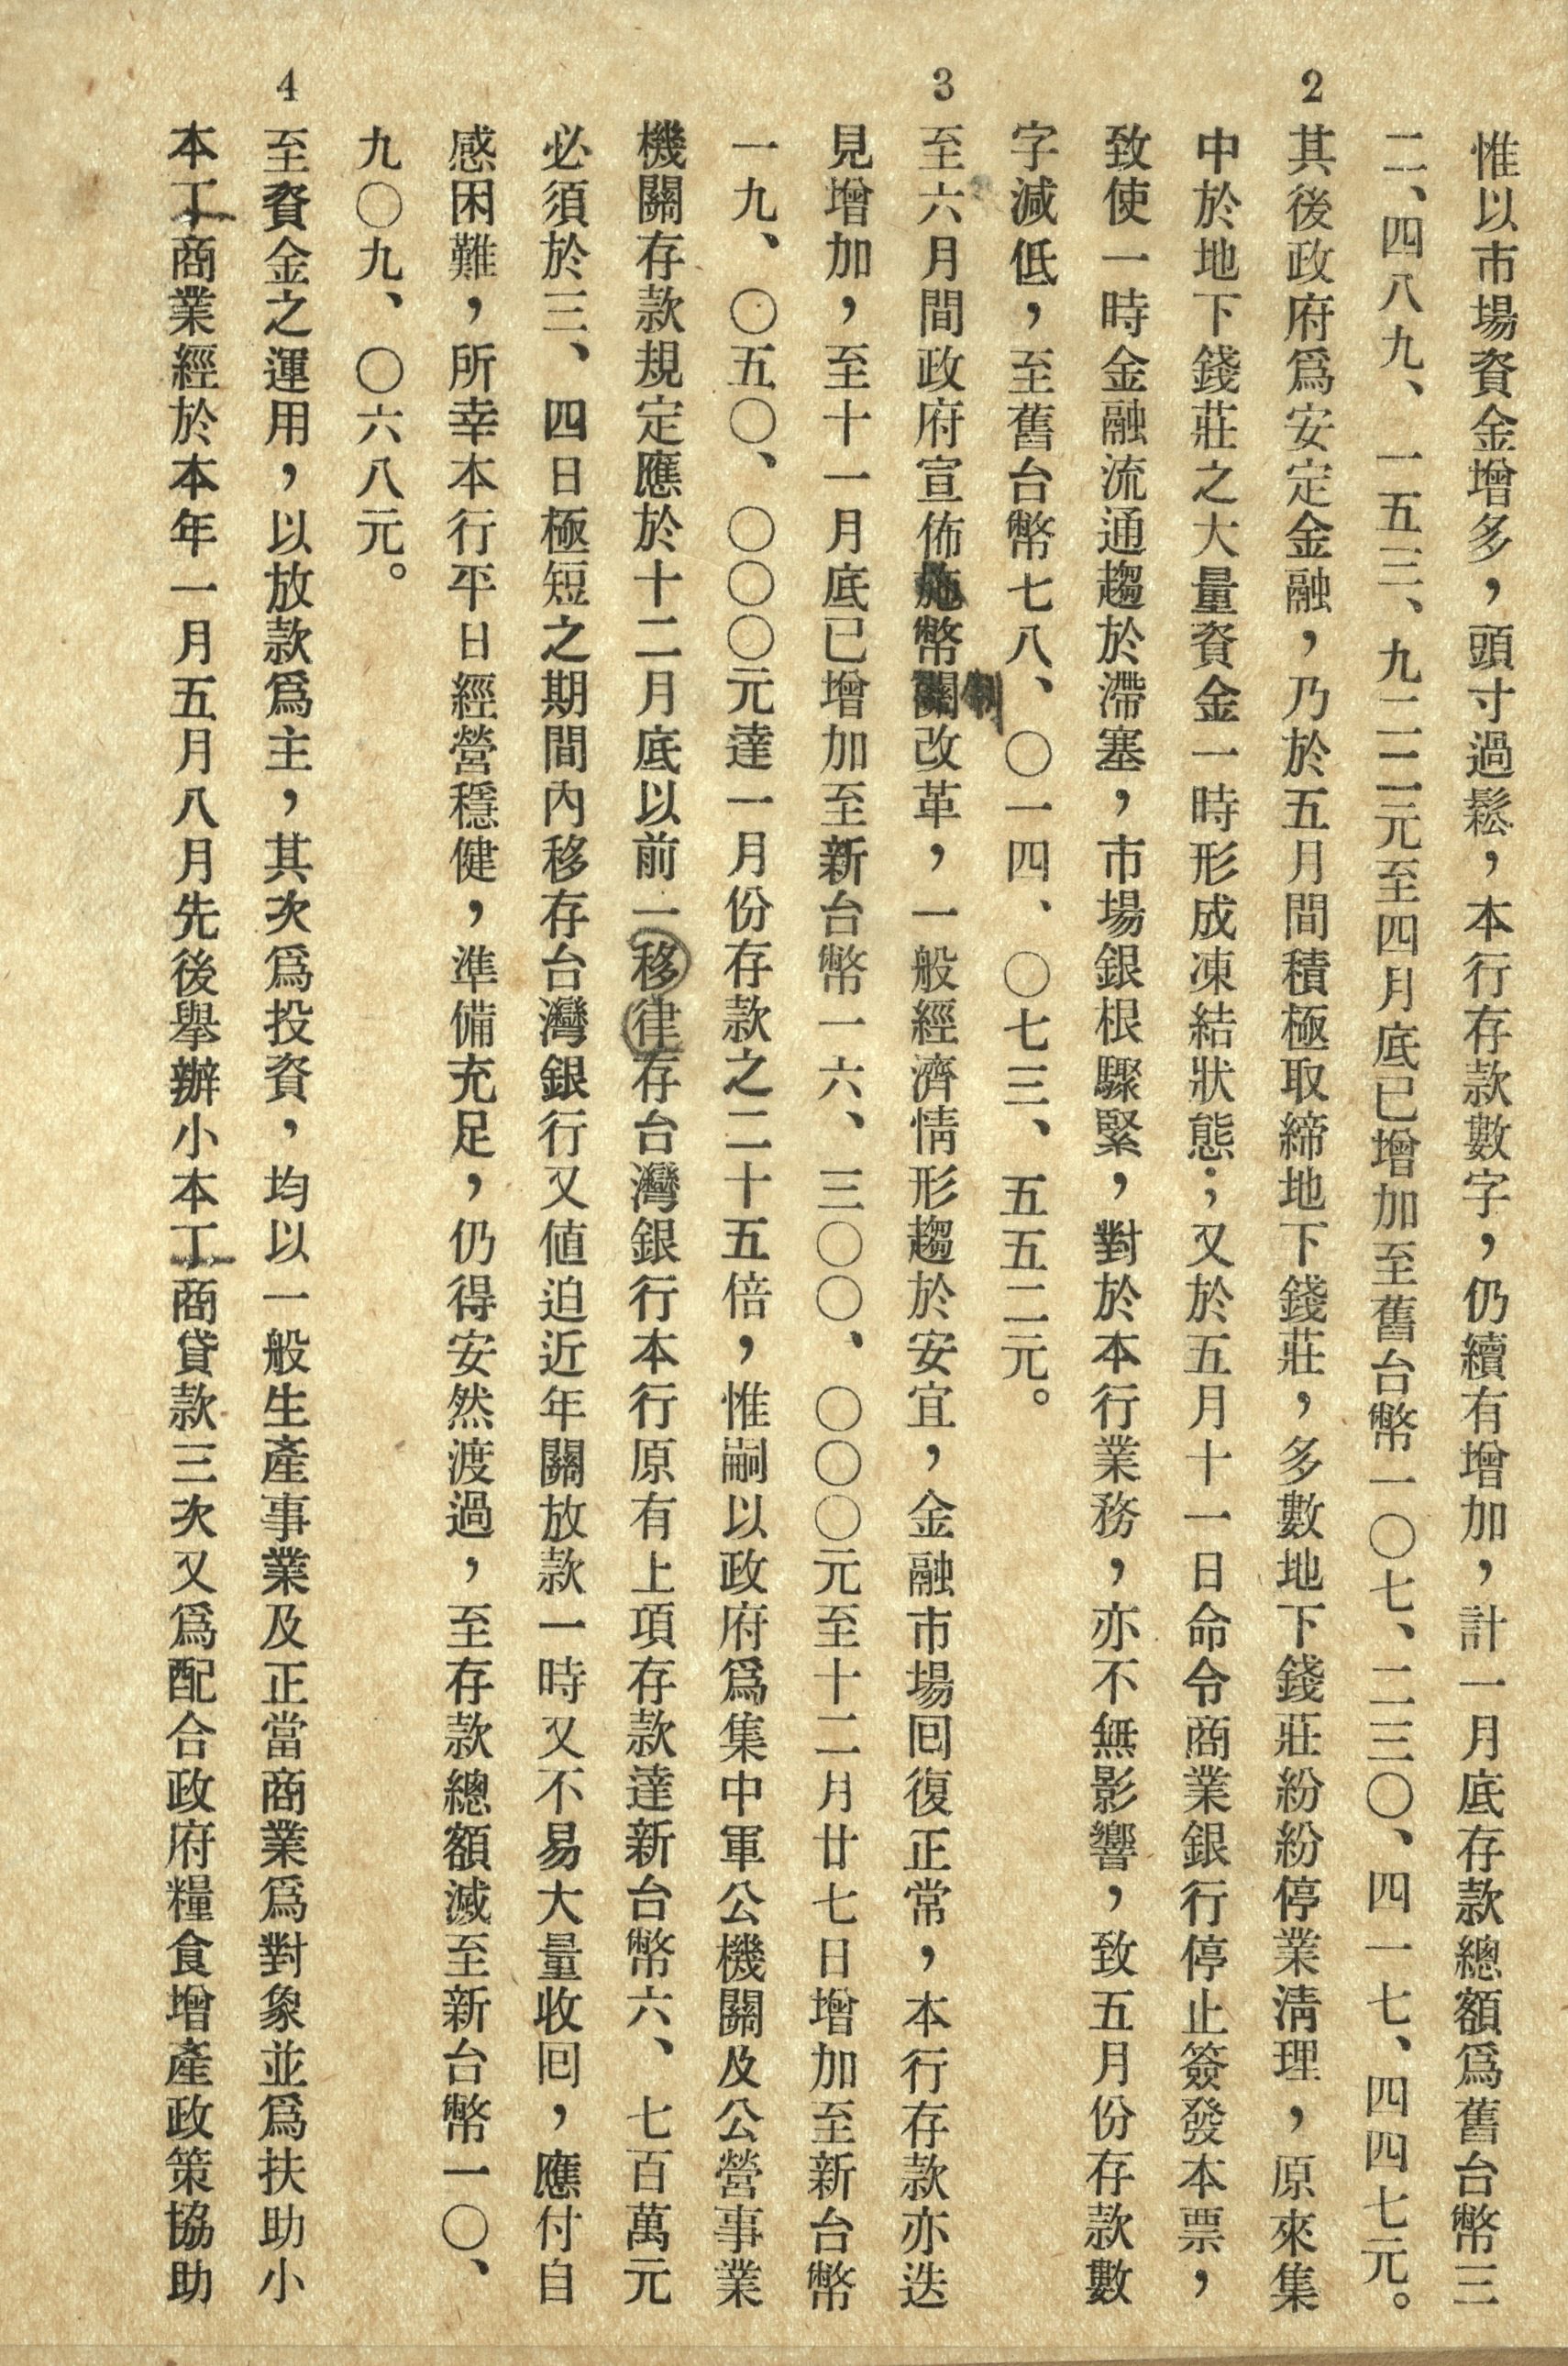 惟以市場資金增多，頭寸過鬆，本行存款數字，仍續有增加，計一月底存款總額爲舊台幣三
二、四八九、一五三、九二二元至四月底已增加至舊台幣一〇七、二三〇、四一七、四四七元。
2 其後政府爲安定金融，乃於五月間積極取締地下錢莊，多數地下錢莊紛紛停業淸理，原來集
中於地下錢莊之大量資金一時形成凍結狀態；又於五月十一日命令商業銀行停止簽發本票，
致使一時金融流通趨於滯塞，市場銀根驟緊，對於本行業務，亦不無影響，致五月份存款數
字減低，至舊台幣七八、〇一四、〇七三、五五二元。
3 至六月間政府宣佈幣制改革，一般經濟情形趨於安宜，金融市場回復正常，本行存款亦迭
見增加，至十一月底已增加至新台幣一六、三〇〇、〇〇〇元至十二月廿七日增加至新台幣
一九、〇五〇、〇〇〇元達一月份存款之二十五倍，惟嗣以政府爲集中軍公機關及公營事業
機關存款規定應於十二月底以前一移律存台灣銀行本行原有上項存款達新台幣六、七百萬元
必須於三、四日極短之期間內移存台灣銀行又値迫近年關放款一時又不易大量收回，應付自
感困難，所幸本行平日經營穩健，準備充足，仍得安然渡過，至存款總額減至新台幣一〇、
九〇九、〇六八元。
4 至資金之運用，以放款爲主，其次爲投資，均以一般生產事業及正當商業爲對象並爲扶助小
本工商業經於本年一月五月八月先後舉辦小本工商貸款三次又爲配合政府糧食增產政策協助